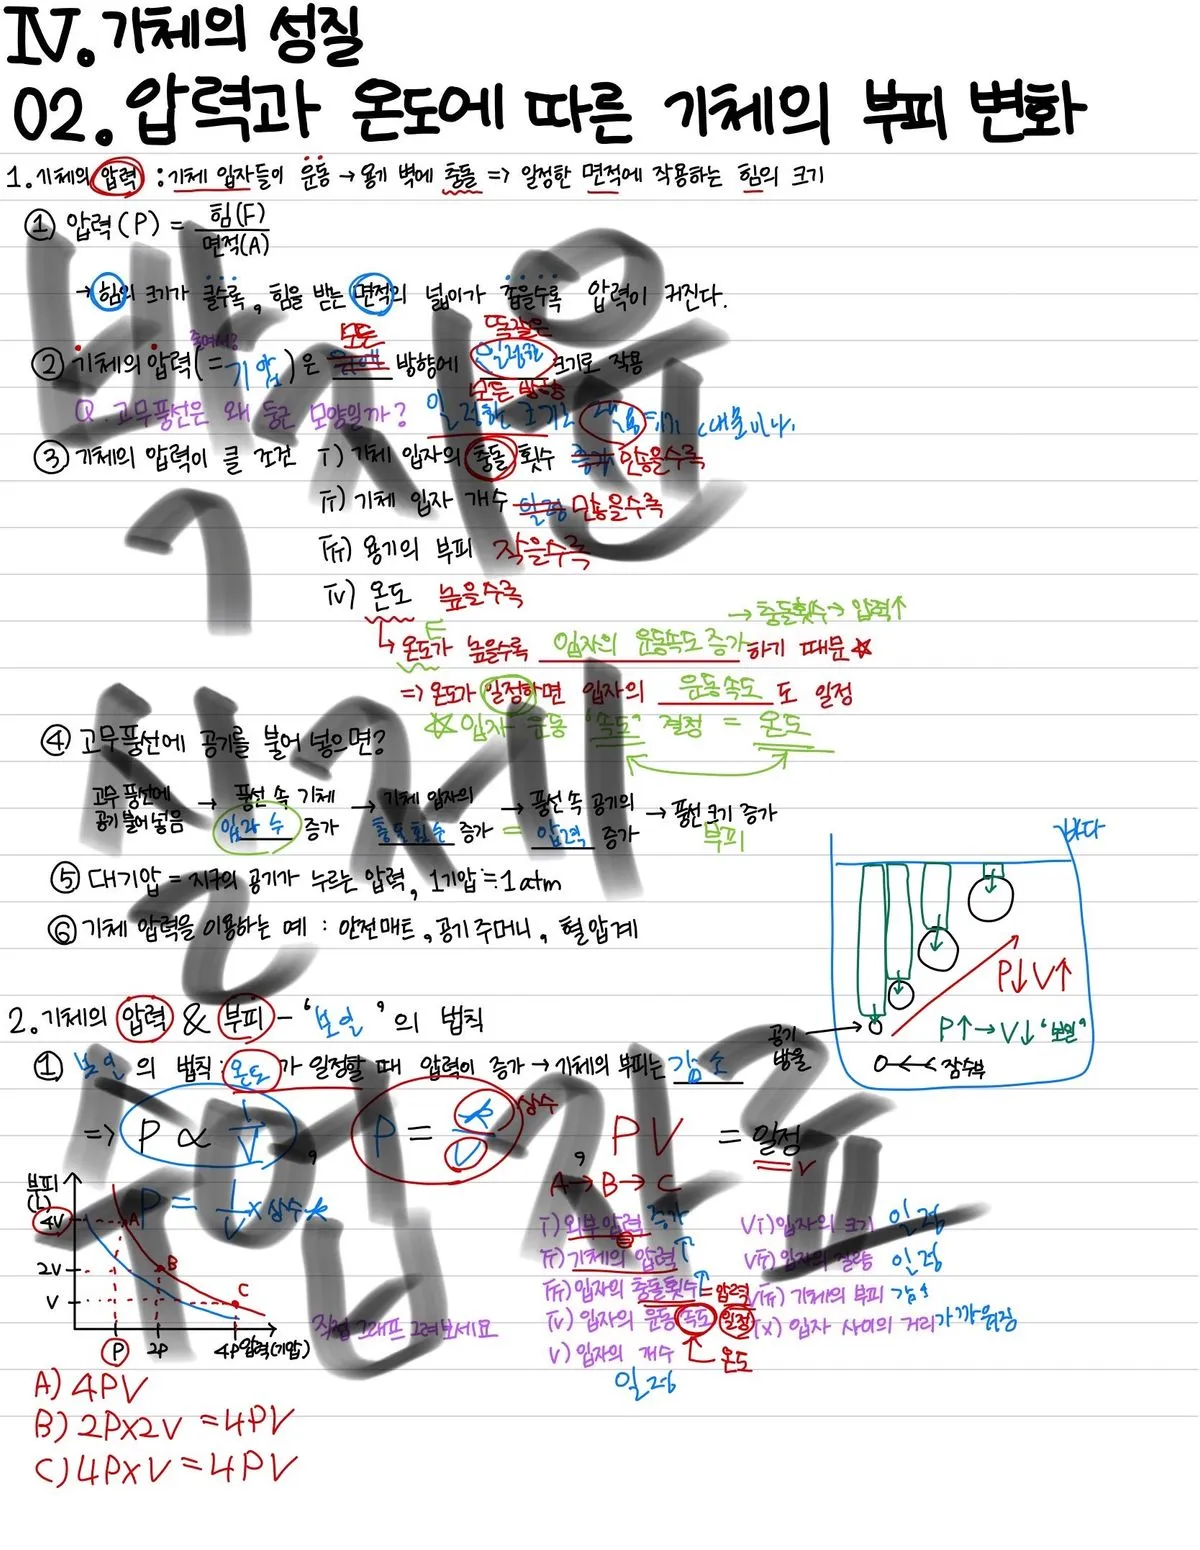 IV. 기체의 성질
02. 압력과 온도에 따른 기체의 부피 변화
1. 기체의 압력 : 기체 입자들이 운동 → 용기 벽에 충돌 => 일정한 면적에 작용하는 힘의 크기
① 압력(P) = 힘(F) / 면적(A)
→ 힘의 크기가 클수록, 힘을 받는 면적의 넓이가 좁을수록 압력이 커진다.
모든 똑같은
② 기체의 압력(=기압)은 방향에 일정한 크기로 작용
모든 방향
Q. 고무풍선은 왜 둥근 모양일까? 일정한 크기로 작용
③ 기체의 압력이 클 조건 i) 기체 입자의 충돌 횟수 많을수록
ii) 기체 입자 개수 일정 많을수록
iii) 용기의 부피 작을수록
iv) 온도 높을수록
→ 충돌횟수 → 압력↑
↳ 온도가 높을수록 입자의 운동속도 증가 하기 때문 ☆
=> 온도가 일정하면 입자의 운동속도 도 일정
☆ 입자 운동 '속도' 결정 = 온도
④ 고무풍선에 공기를 불어 넣으면?
고무 풍선에 공기 불어 넣음 → 풍선 속 기체 입자 수 증가 → 기체 입자의 충돌 횟수 증가 = → 풍선 속 공기의 압력 증가 → 풍선 크기 증가
부피
바다
⑤ 대기압 = 지구의 공기가 누르는 압력, 1기압 ≒ 1atm
⑥ 기체 압력을 이용하는 예 : 안전매트, 공기 주머니, 혈압계
P↓ V↑
P↑ → V↓ '보일'
공기 방울
잠수부
2. 기체의 압력 & 부피 - '보일'의 법칙
① 보일의 법칙 : 온도가 일정할 때 압력이 증가 → 기체의 부피는 감소
=> P ∝ 1/V , P = k/V 상수 , PV = 일정
P = 1/V × 상수 k
A → B → C
부피(L)
4V
2V
V
A
B
C
P
2P
4P
압력(기압)
직접 그래프 그려보세요
i) 외부 압력 증가
ii) 기체의 압력 ↑
iii) 입자의 충돌횟수 ↑ = 압력
iv) 입자의 운동 속도 일정
온도
v) 입자의 개수
일정
vi) 입자의 크기 일정
vii) 입자의 질량 일정
viii) 기체의 부피 감소
ix) 입자 사이의 거리 가까워짐
A) 4PV
B) 2P×2V = 4PV
C) 4P×V = 4PV